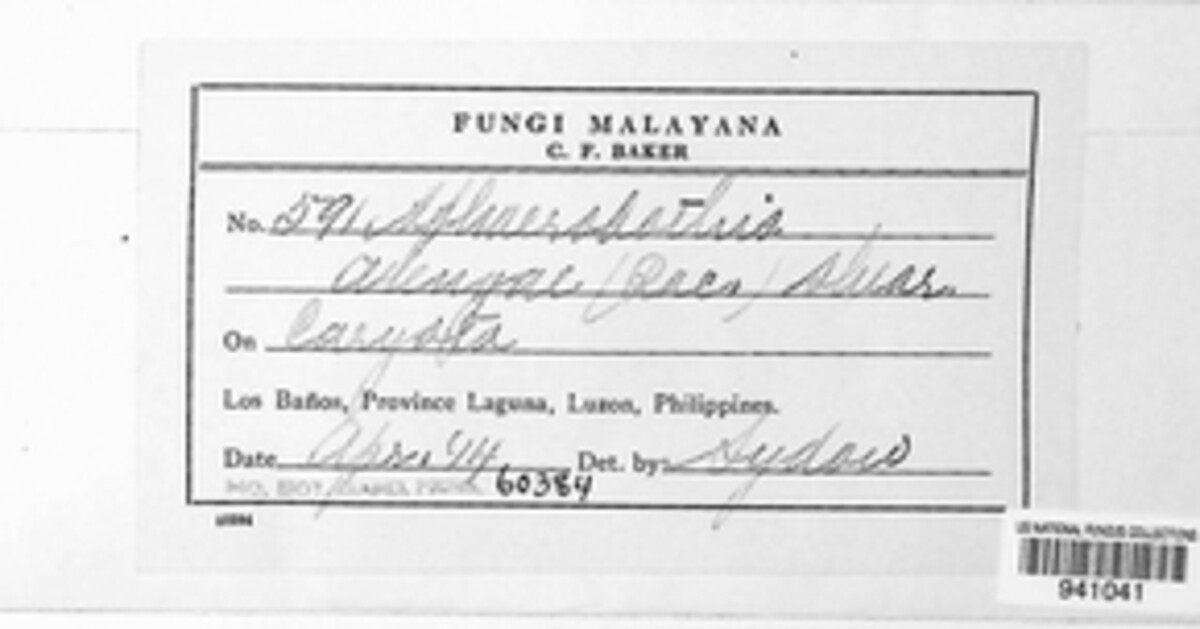 FUNGI MALAYANA
C. F. BAKER
No. 591 Sphaerodothis
arengae (Rac.) Shear.
On Caryota
Los Baños, Province Laguna, Luzon, Philippines.
Date Apr. '14 Det. by Sydow
MO. BOT. GARD. HERB. 60384
US NATIONAL FUNGUS COLLECTIONS
941041